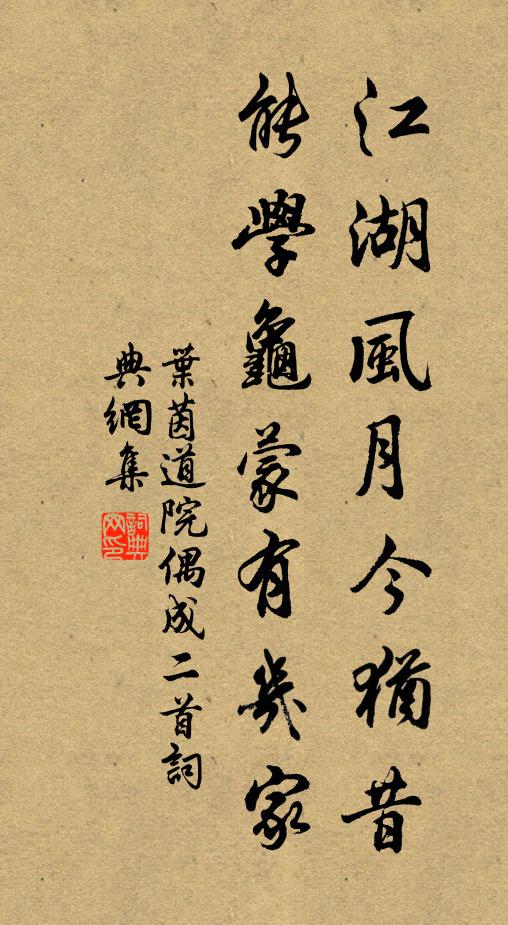 江湖風月今猶昔
能學龜蒙有幾家
葉茵道院偶成二首詞
典網集
詞典網印